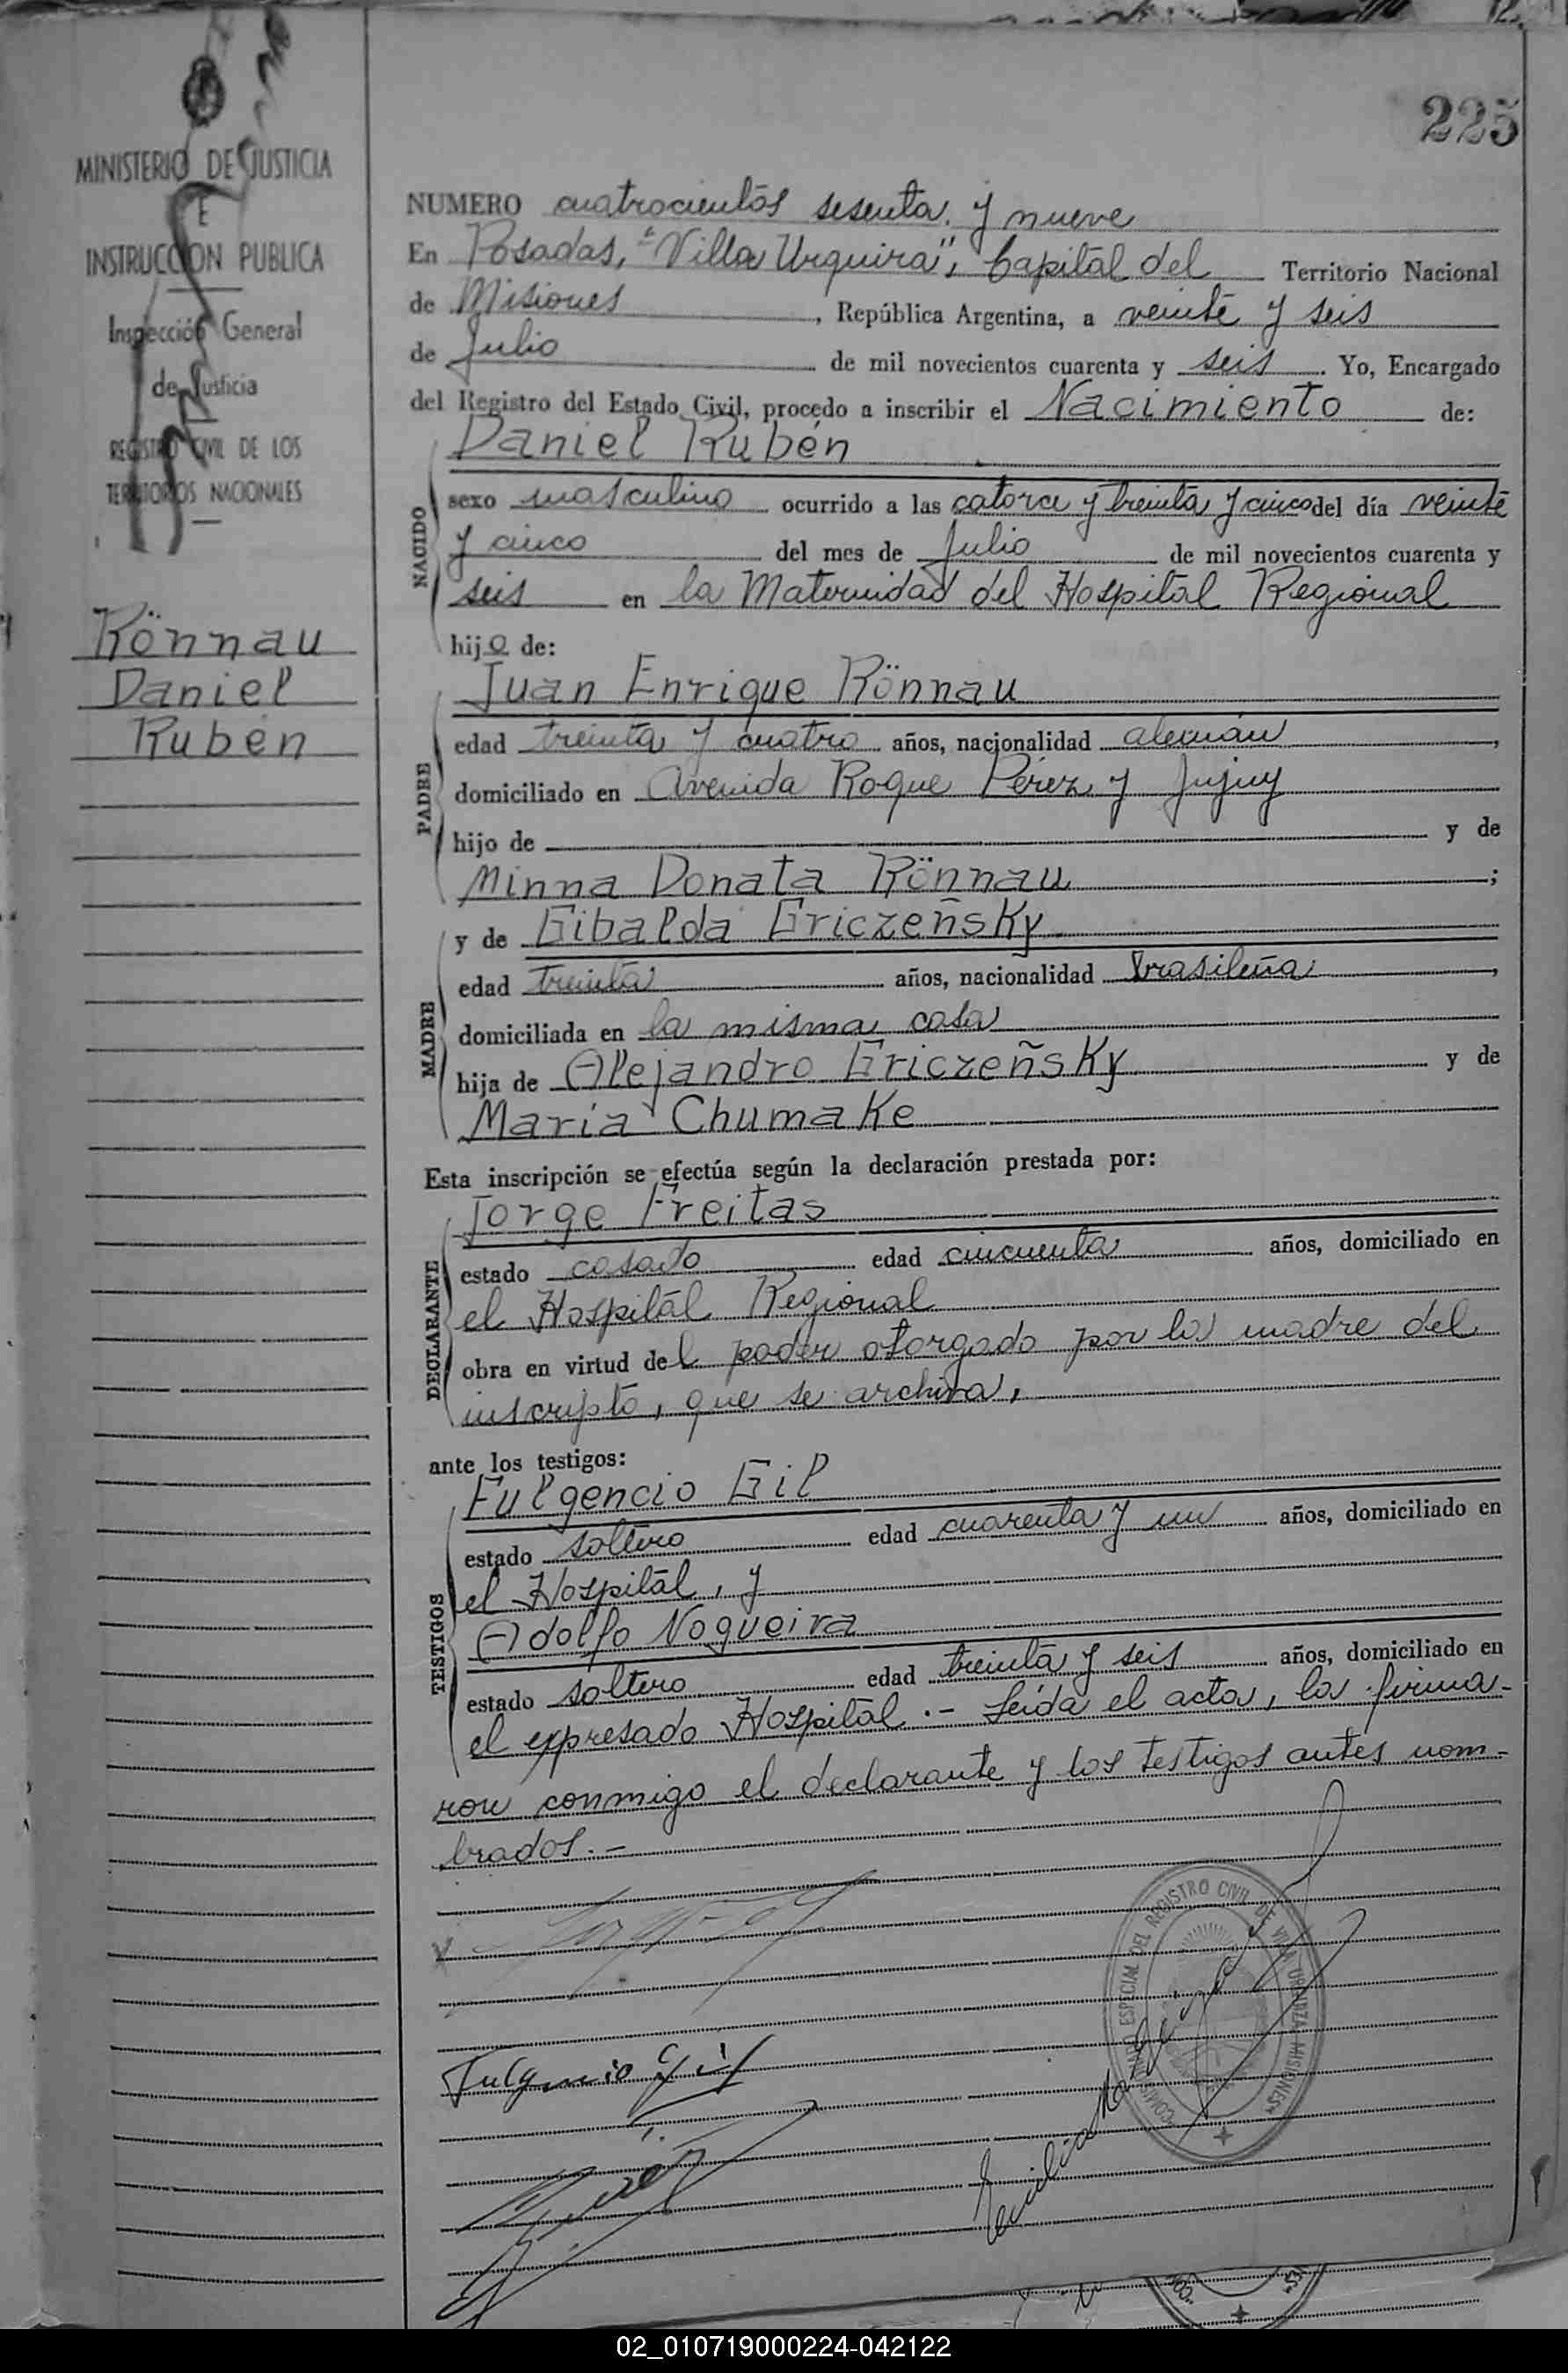 225
MINISTERIO DE JUSTICIA
E
INSTRUCCION PUBLICA
Inspección General
de Justicia
REGISTRO CIVIL DE LOS
TERRITORIOS NACIONALES
Rönnau
Daniel
Rubén
NUMERO cuatrocientos sesenta y nueve
En Posadas, "Villa Urquiza", Capital del Territorio Nacional
de Misiones, República Argentina, a veinte y seis
de Julio de mil novecientos cuarenta y seis. Yo, Encargado
del Registro del Estado Civil, procedo a inscribir el Nacimiento de:
Daniel Rubén
NACIDO
sexo masculino ocurrido a las catorce y treinta y cinco del día veinte
y cinco del mes de Julio de mil novecientos cuarenta y
seis en la Maternidad del Hospital Regional
hijo de:
Juan Enrique Rönnau
PADRE
edad treinta y cuatro años, nacionalidad alemán,
domiciliado en Avenida Roque Pérez y Jujuy
hijo de y de
Minna Donata Rönnau;
y de Gibalda Griczeñsky
MADRE
edad treinta años, nacionalidad brasileña,
domiciliada en la misma casa
hija de Alejandro Griczeñsky y de
María Chumake
Esta inscripción se efectúa según la declaración prestada por:
Jorge Freitas
DECLARANTE
estado casado edad cincuenta años, domiciliado en
el Hospital Regional
obra en virtud del poder otorgado por la madre del
inscripto, que se archiva,
ante los testigos:
Fulgencio Gil
TESTIGOS
estado soltero edad cuarenta y un años, domiciliado en
el Hospital, y
Adolfo Nogueira
estado soltero edad treinta y seis años, domiciliado en
el expresado Hospital.- Leída el acta, la firma-
ron conmigo el declarante y los testigos antes nom-
brados.-
Fulgencio Gil
COMISARIADO ESPECIAL DEL REGISTRO CIVIL DE VILLA URQUIZA MISIONES
02_010719000224-042122